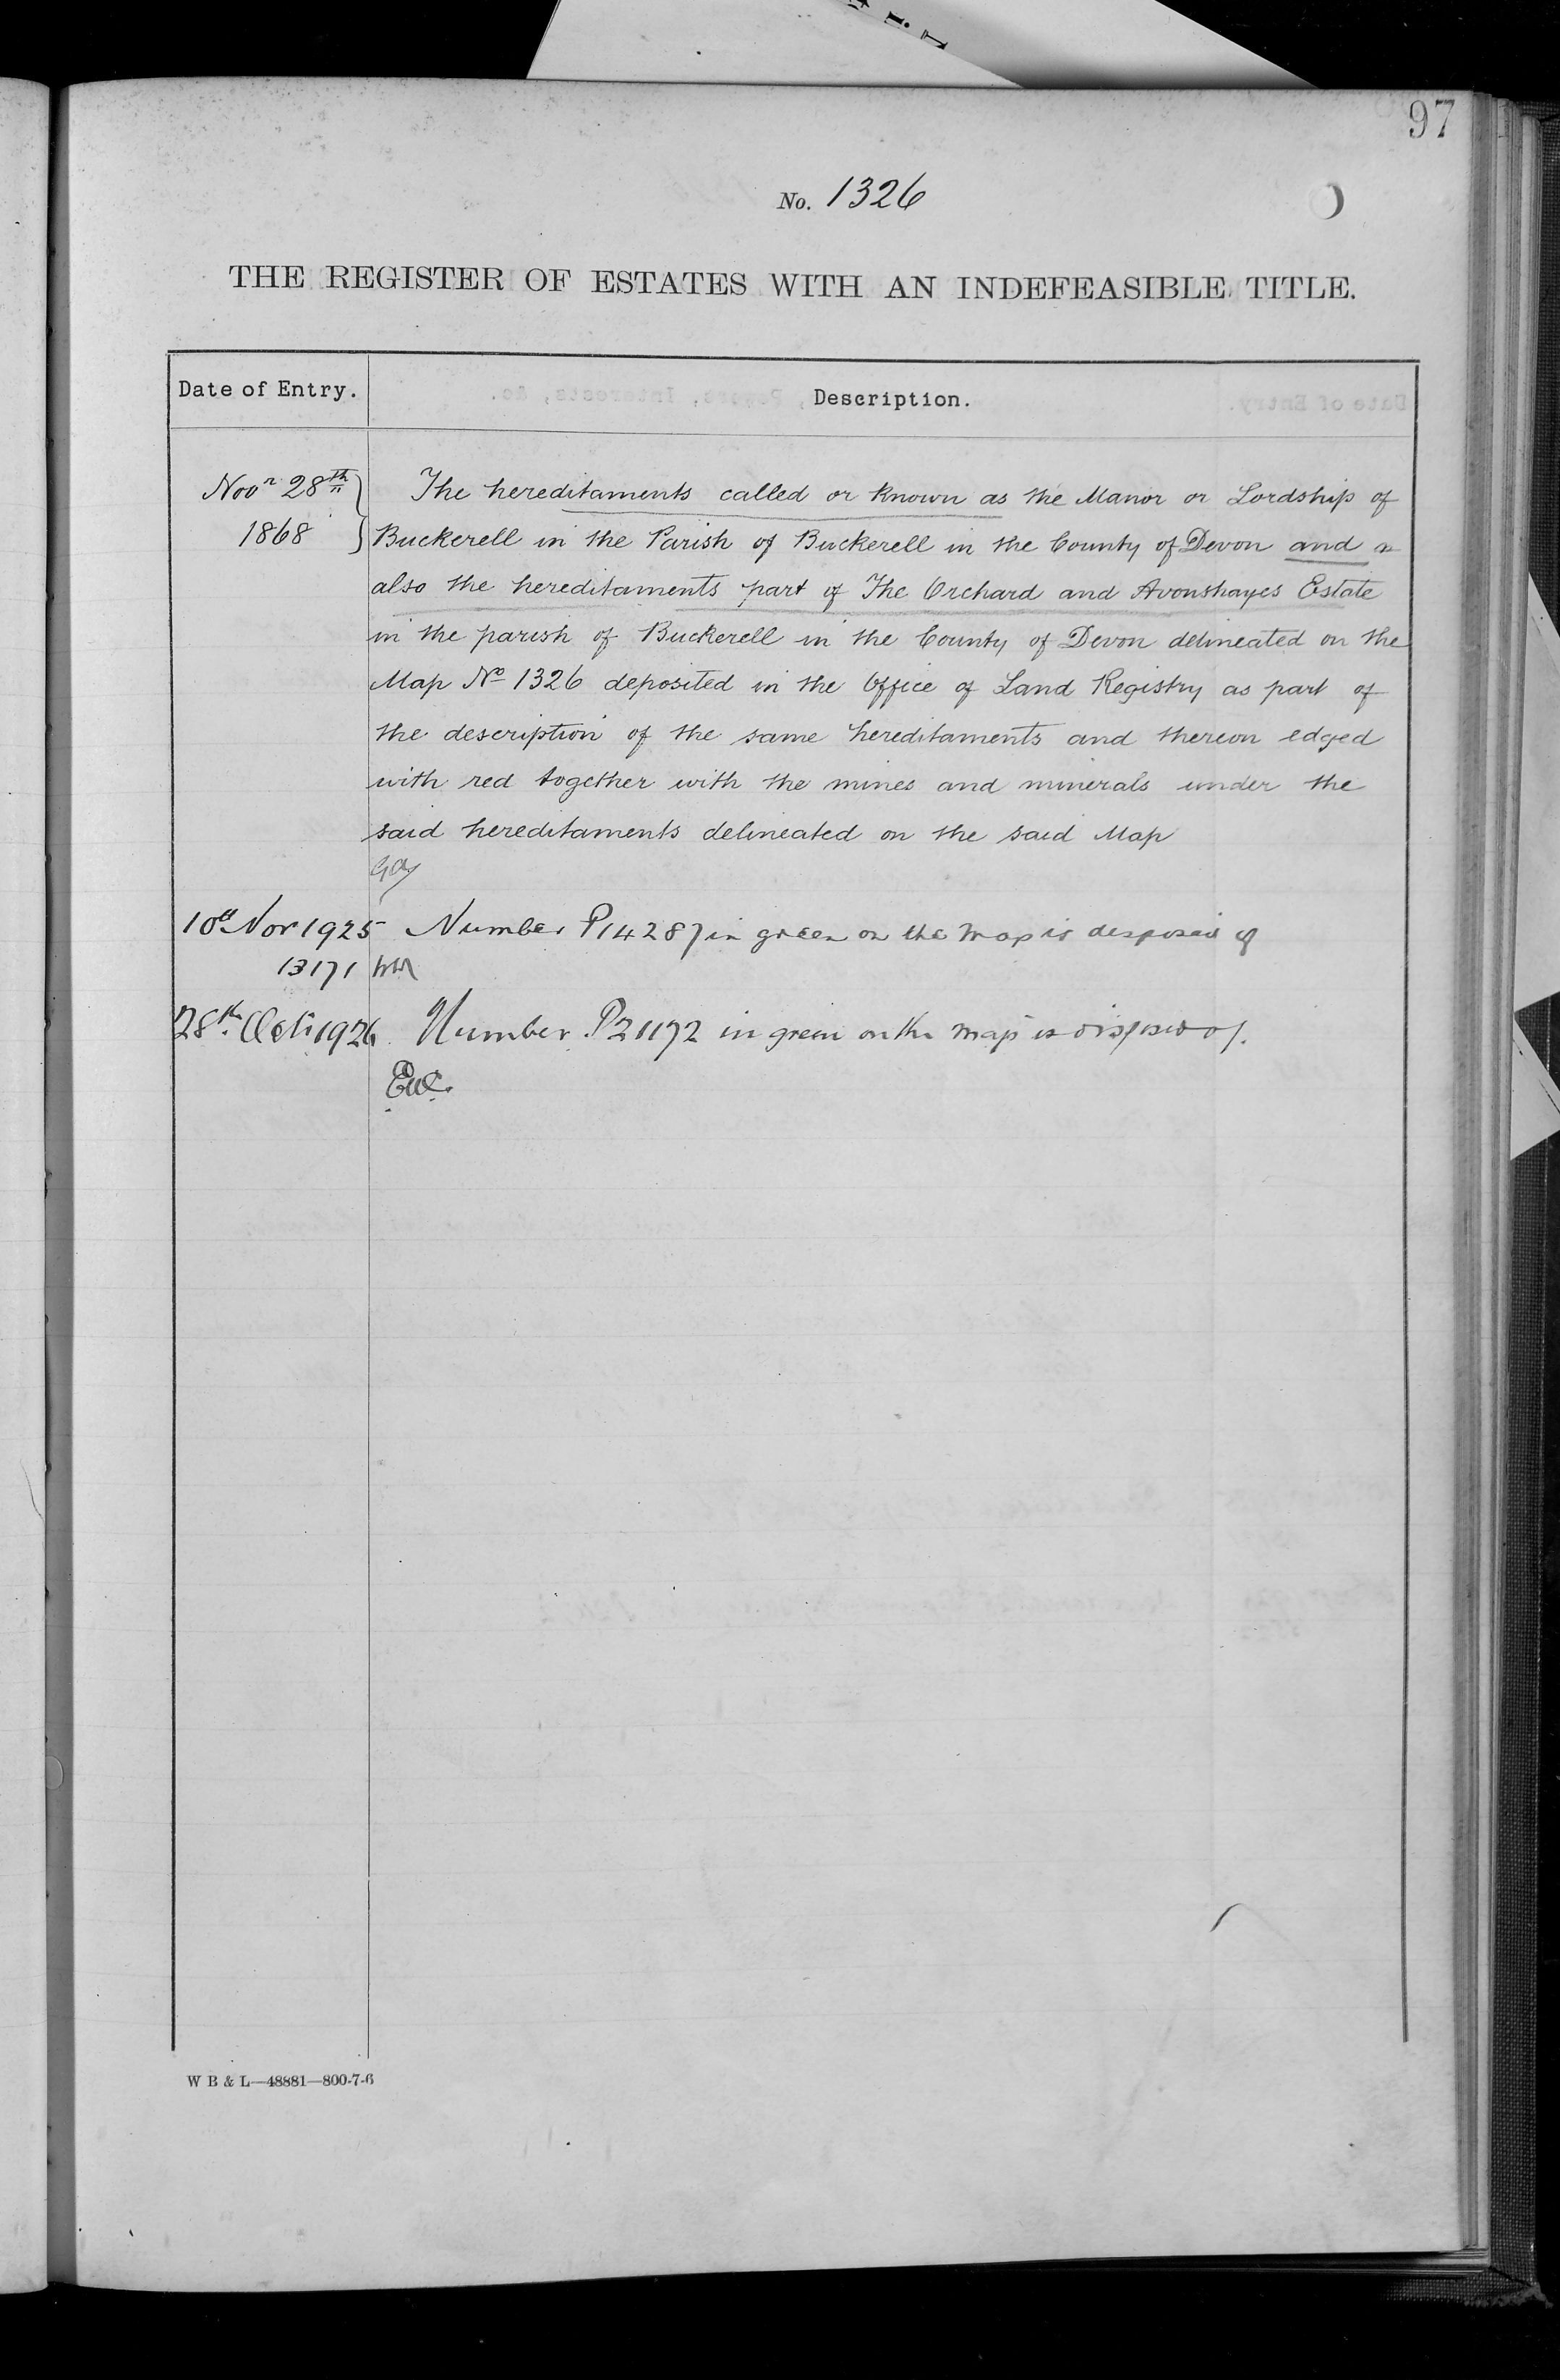 97
No. 1326
THE REGISTER OF ESTATES WITH AN INDEFEASIBLE TITLE.
Date of Entry. Description.
Novr 28th The hereditaments called or known as the Manor or Lordship of
1868 Buckerell in the Parish of Buckerell in the County of Devon and
also the hereditaments part of The Orchard and Avonshayes Estate
in the parish of Buckerell in the County of Devon delineated on the
Map No 1326 deposited in the Office of Land Registry as part of
the description of the same hereditaments and thereon edged
with red together with the mines and minerals under the
said hereditaments delineated on the said Map
10th Nov 1925 Number P14287 in green on the map is disposed of
13171
28th Oct 1926 Number P21172 in green on the map is disposed of.
W B & L—48881—800-7-6